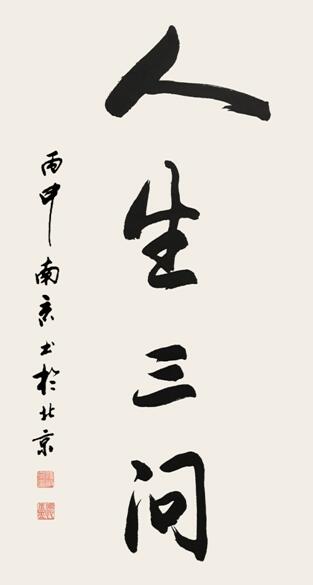 人生三问
丙申南书於北京